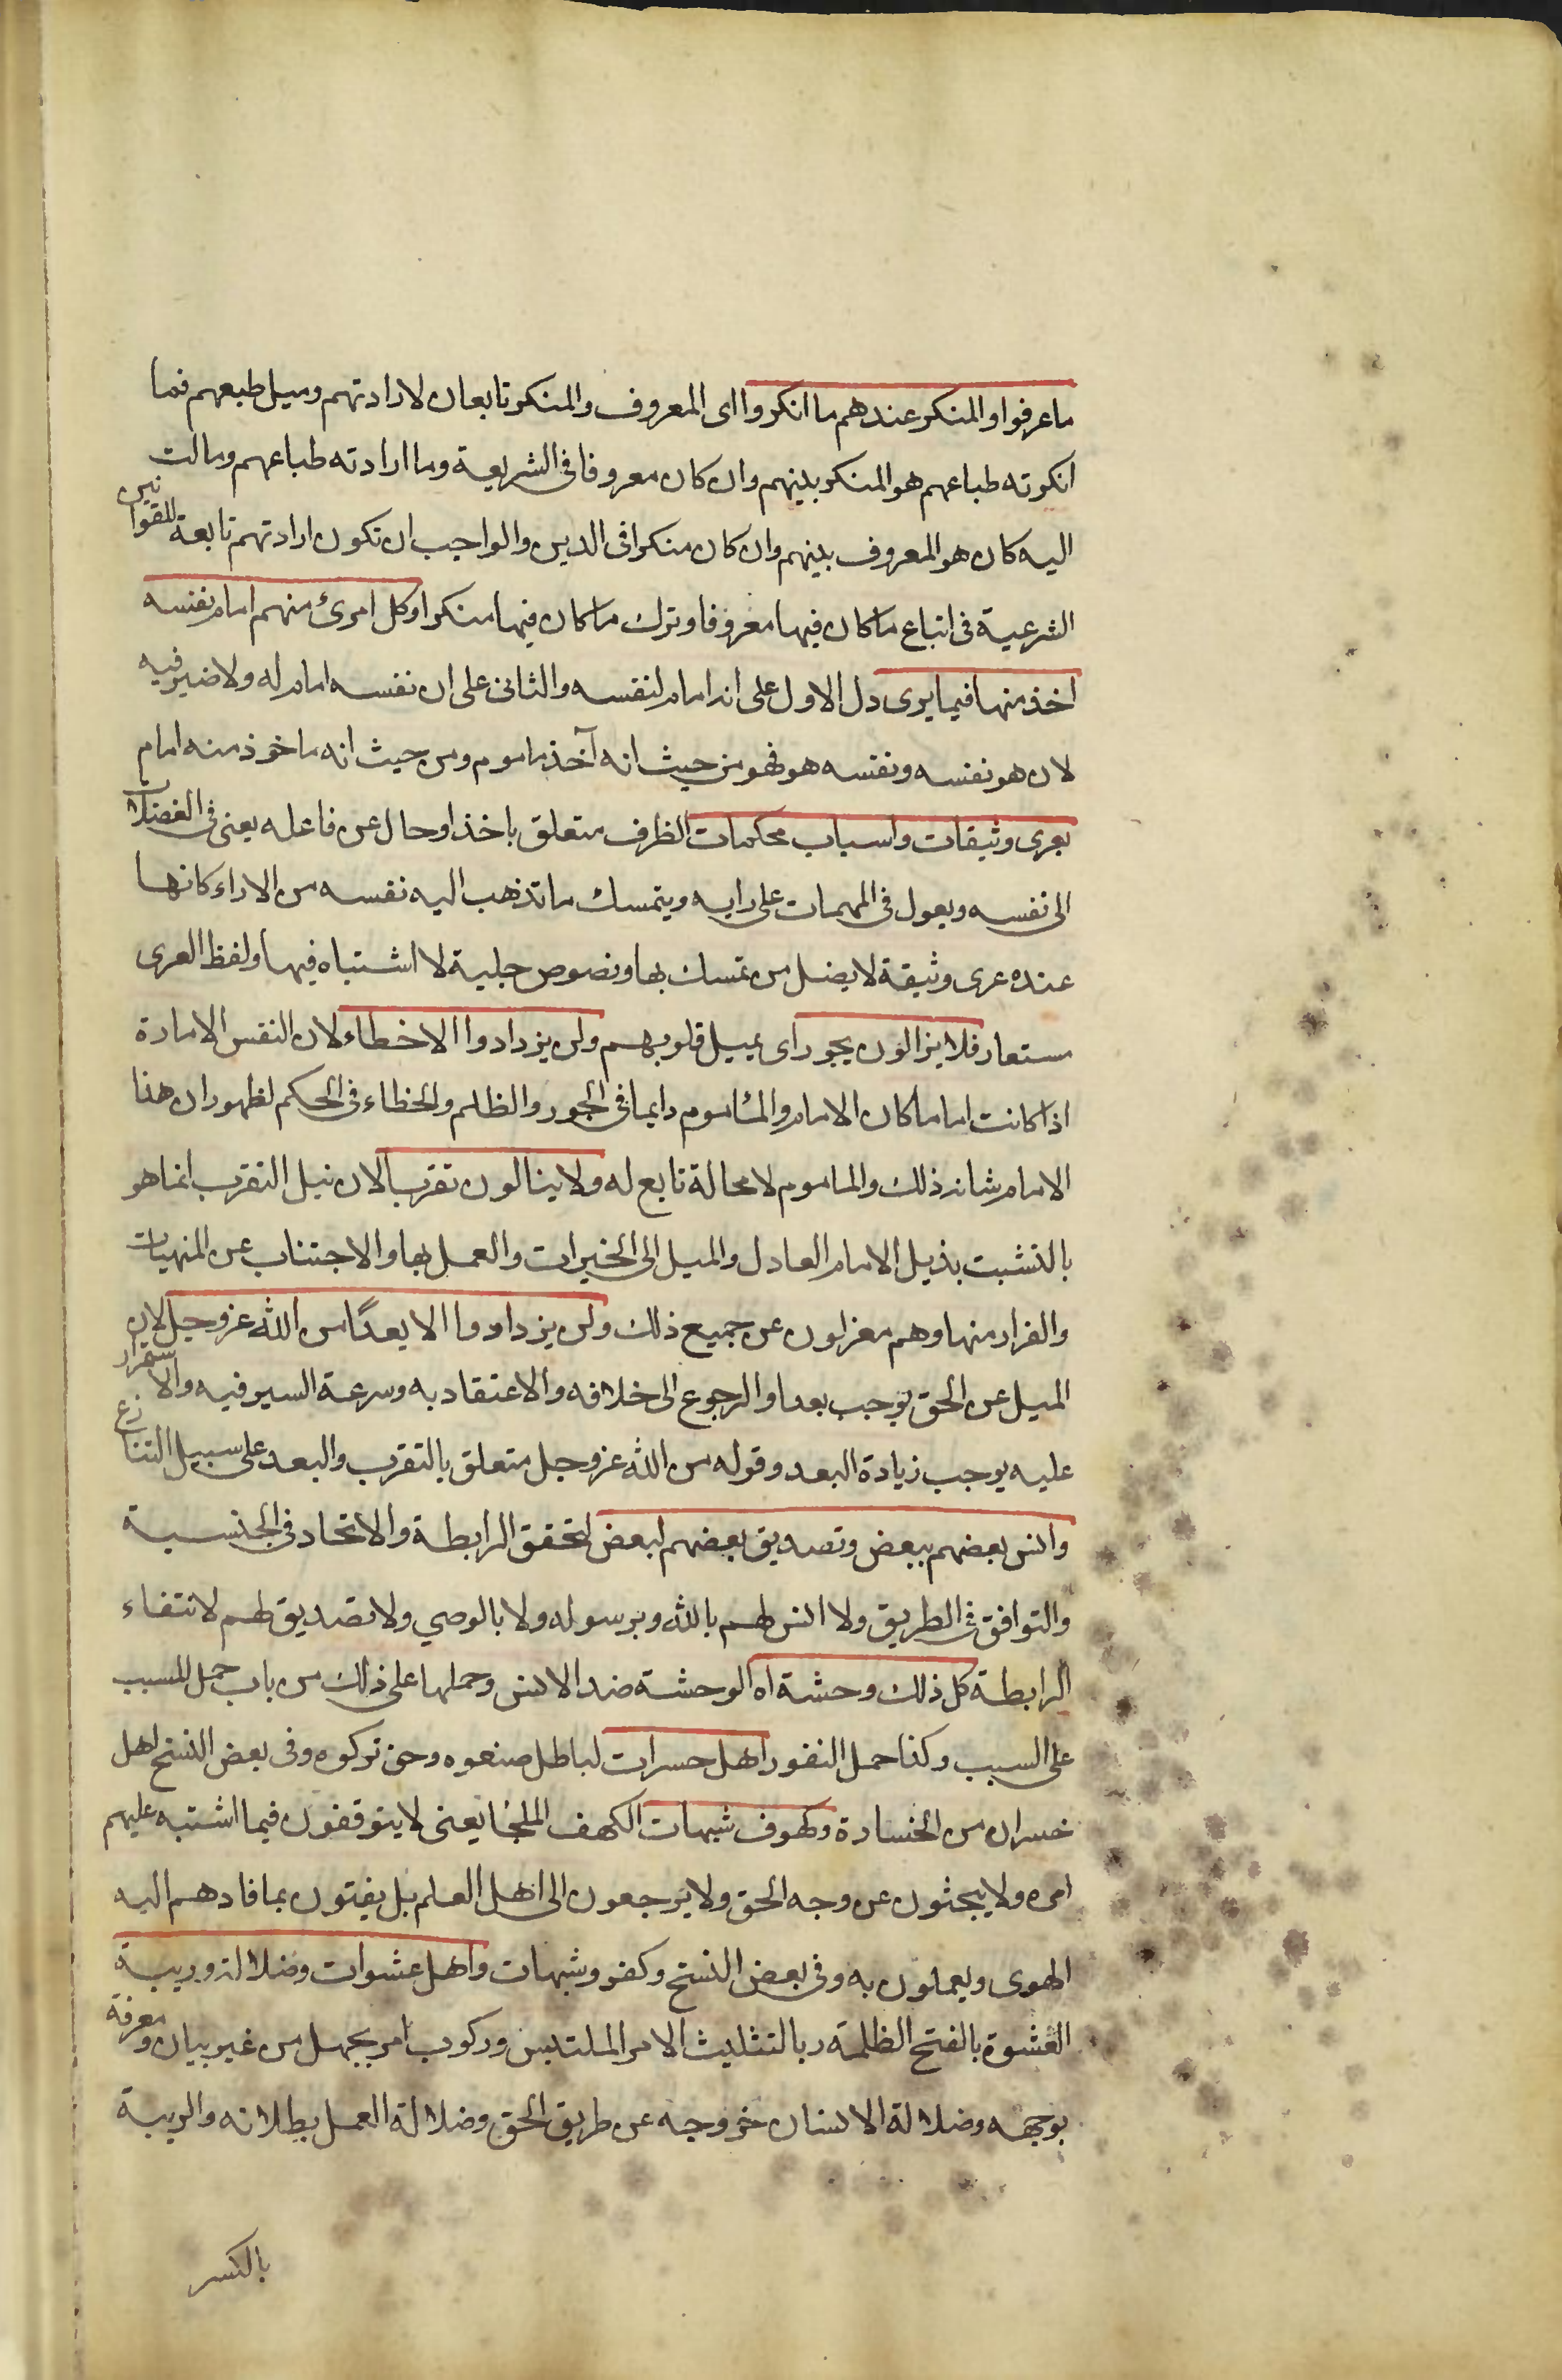 ما عرفوا والمنكر عندهم ما انكروا اى المعروف والمنكر تابعان لارادتهم وميل طبعهم فما
انكرته طباعهم هو المنكر بينهم وان كان معروفا فى الشريعة وما ارادته طباعهم ومالت
اليه كان هو المعروف بينهم وان كان منكرا فى الدين والواجب ان تكون ارادتهم تابعة للقوانين
الشرعية فى اتباع ما كان فيها معروفا وترك ما كان فيها منكرا وكل امرئ منهم امام نفسه
اخذ منها فيما يرى دل الاول على انه امام لنفسه والثانى على ان نفسه امام له ولا ضير فيه
لان هو نفسه ونفسه هو فهو من حيث انه آخذ ماموم ومن حيث انه ماخوذ منه امام
بعرى وثيقات واسباب محكمات الظرف متعلق باخذ او حال عن فاعله يعنى فى المعضلات
الى نفسه ويعول فى المهمات على رايه ويتمسك ما تذهب اليه نفسه من الاراء كانها
عنده عرى وثيقة لا يضل من تمسك بها ونصوص جلية لا اشتباه فيها ولفظ العرى
مستعار فلا يزالون بجور اى بميل قلوبهم ولن يزدادوا الا خطاء لان النفس الامارة
اذا كانت اماما كان الامام والمأموم دايما فى الجور والظلم والخطاء فى الحكم لظهور ان هذا
الامام شانه ذلك والماموم لا محالة تابع له ولا ينالون تقربا لان نيل التقرب انما هو
بالتشبت بذيل الامام العادل والميل الى الخيرات والعمل بها والاجتناب عن المنهيات
والفرار منها وهم معزلون عن جميع ذلك ولن يزدادوا الا بعدًا من الله عز وجل لان
الميل عن الحق يوجب بعدا والرجوع الى خلافه والاعتقاد به وسرعة السير فيه والاستمرار
عليه يوجب زيادة البعد وقوله من الله عز وجل متعلق بالتقرب والبعد على سبيل التنازع
وانس بعضهم ببعض وتصديق بعضهم لبعض لتحقق الرابطة والاتحاد فى الجنسية
والتوافق فى الطريق ولا انس لهم بالله وبرسوله ولا بالوصي ولا تصديق لهم لانتفاء
الرابطة كل ذلك وحشة اه الوحشة ضد الانس وحملها على ذلك من باب حمل المسبب
على السبب وكذا حمل النفور اهل حسرات لباطل صنعوه وحق تركوه وفى بعض النسخ اهل
خسران من الخسارة وكهوف شبهات الكهف الملجأ يعنى لا يتوقفون فيما اشتبه عليهم
امره ولا يبحثون عن وجه الحق ولا يرجعون الى اهل العلم بل يفتون بما قادهم اليه
الهوى ويعملون به وفى بعض النسخ وكفر وشبهات واهل عشوات وضلالة وريبة
العشوة بالفتح الظلمة وبالتثليث الامر الملتبس وركوب امر بجهل من غير بيان ومعرفة
بوجهه وضلالة الانسان خروجه عن طريق الحق وضلالة العمل بطلانه والريبة
بالكسر